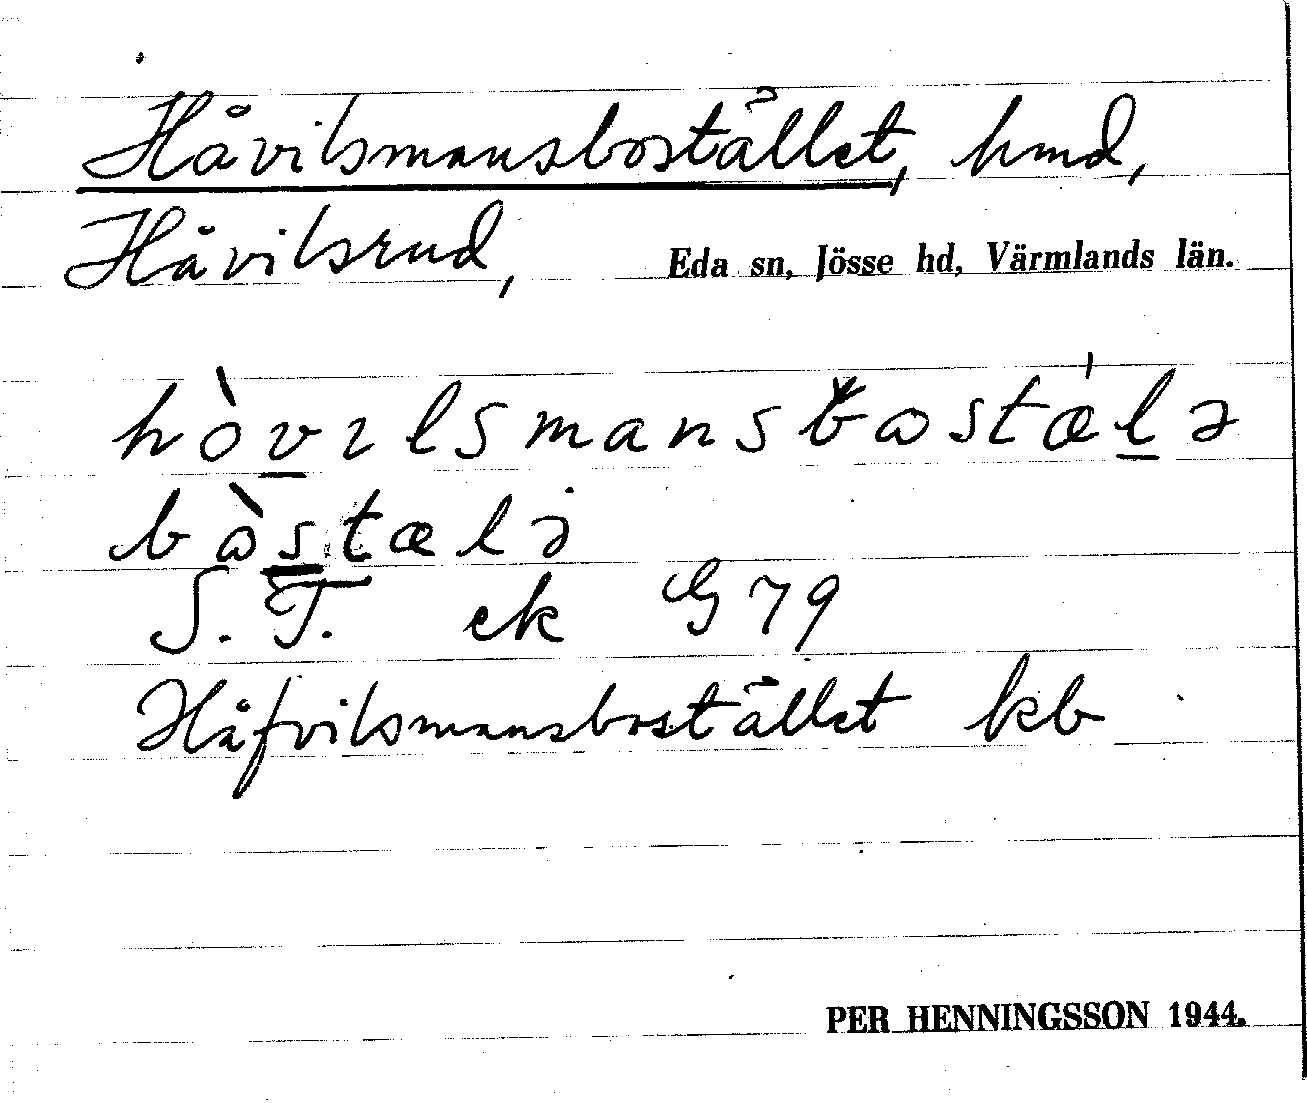 Håvilsmansbostället, hmd,
Håvilsrud, Eda sn, Jösse hd, Värmlands län.
hòvılsmansbωstǽlə
bὼstælə
S. T. ek G 79
Håfvilsmansbostället kb
PER HENNINGSSON 1944.